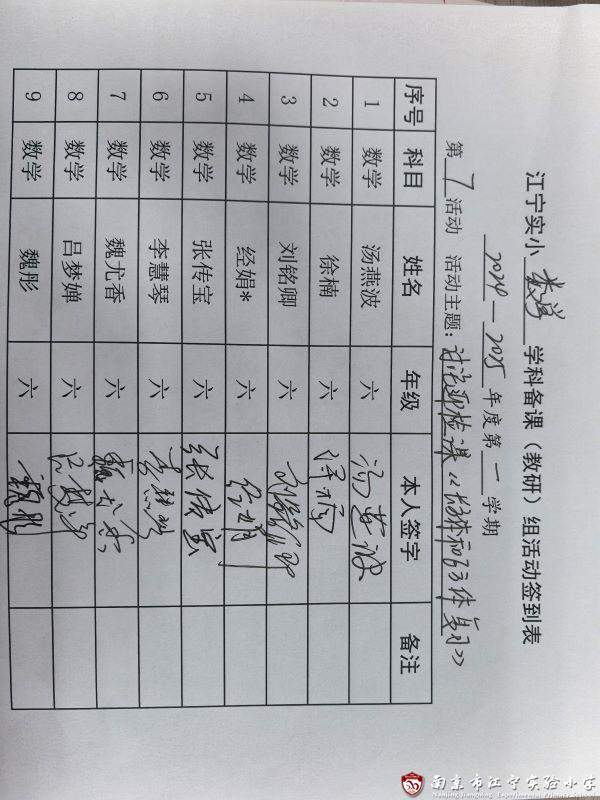 江宁实小 数学 学科备课（教研）组活动签到表
2024—2025 年度第 一 学期
第 7 活动 活动主题：讨论迎检课《长方体和正方体复习》
序号 科目 姓名 年级 本人签字 备注
1 数学 汤燕波 六 汤燕波
2 数学 徐楠 六 徐楠
3 数学 刘铭卿 六 刘铭卿
4 数学 经娟* 六 经娟
5 数学 张传宝 六 张传宝
6 数学 李慧琴 六 李慧琴
7 数学 魏尤香 六 魏尤香
8 数学 吕梦婵 六 吕梦婵
9 数学 魏彤 六 魏彤